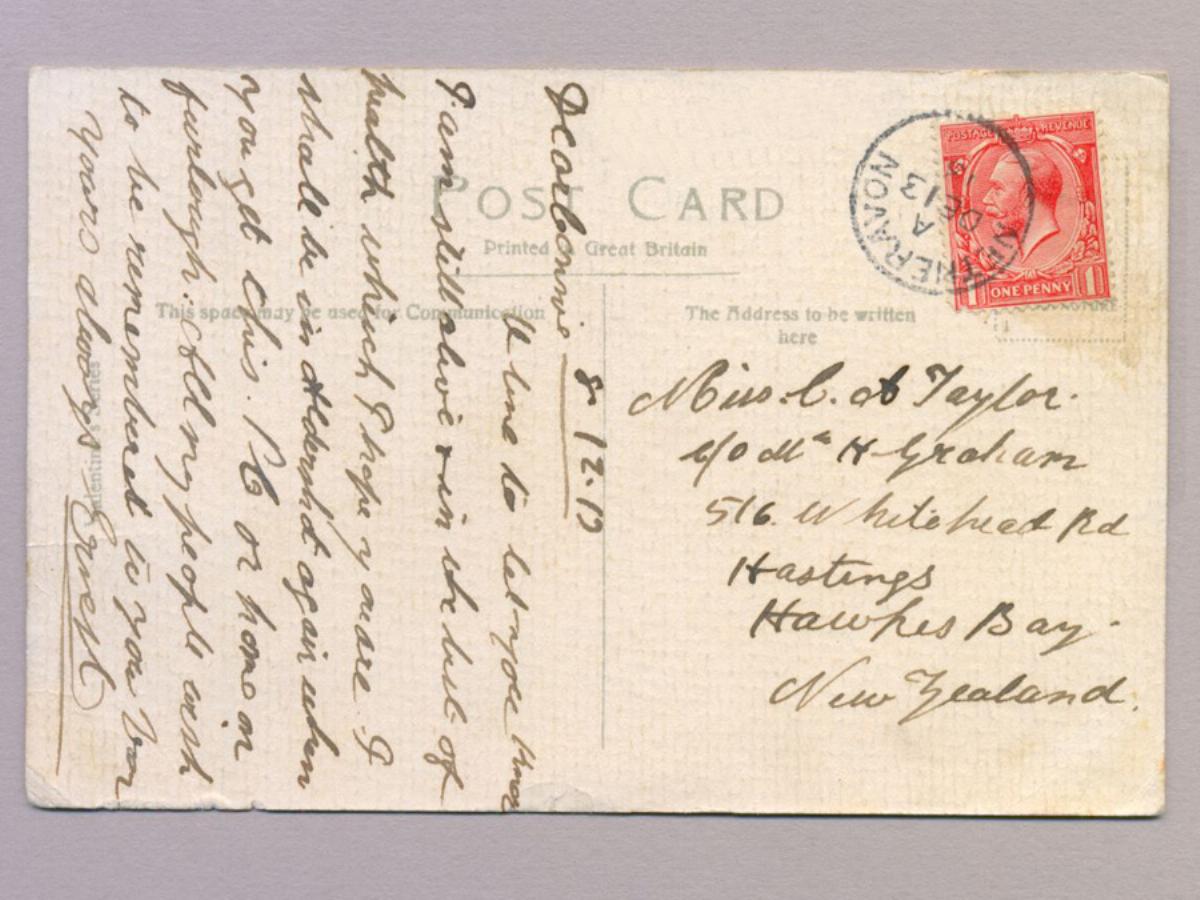 POST CARD
Printed in Great Britain
This space may be used for Communication
The Address to be written
here
POSTAGE REVENUE
1 ONE PENNY 1
NETHERAVON
A
DE 13
Miss. C. A Taylor.
c/o Mrs H Graham
516. Whitehead Rd
Hastings
Hawkes Bay.
New Zealand.
8-12-19
Dear Connie
A line to let you know
I am still alive & in the best of
health which I hope you are I
shall be in Aldershot again when
you get this. P C or home on
furlough. All my people wish
to be remembered to you
Yours always Ernest
Valentine's Series